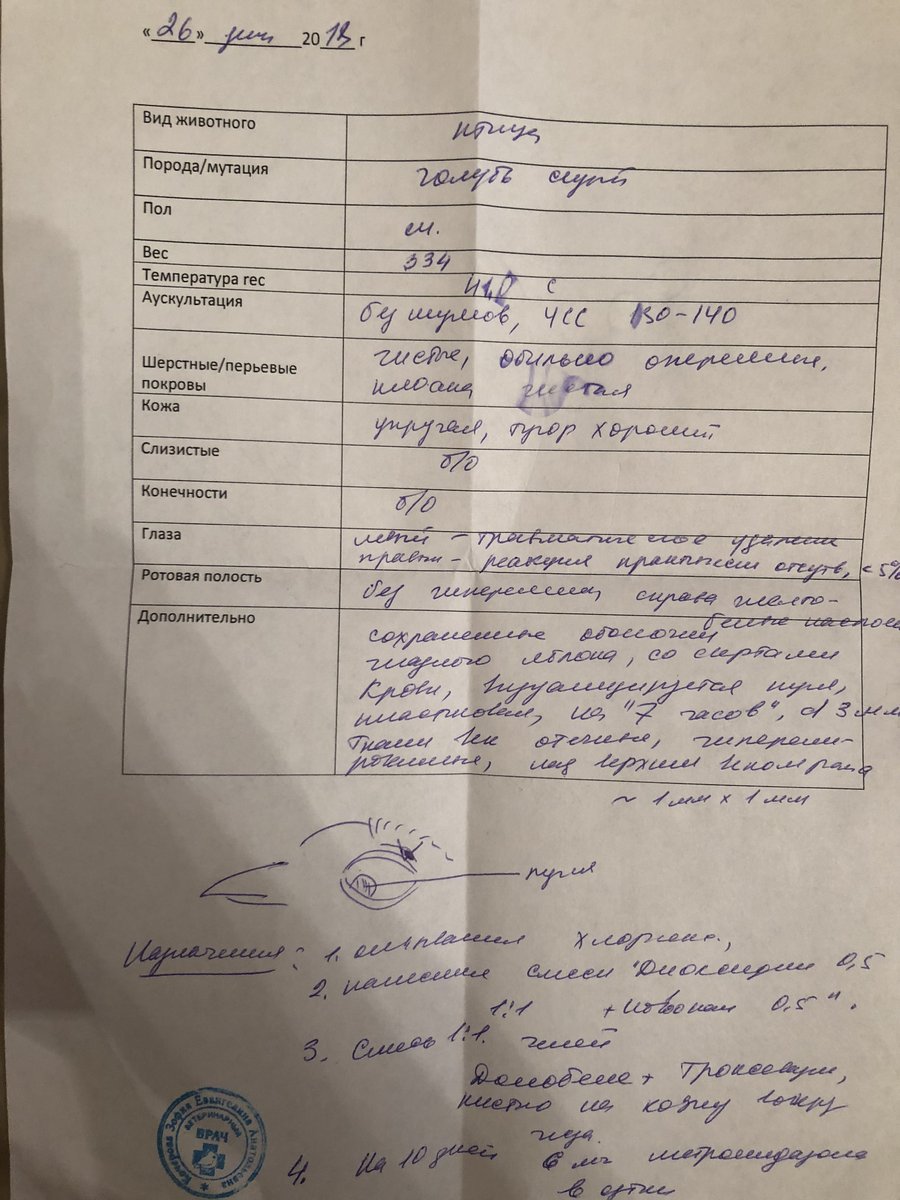 «26» 2018 г
Вид животного птица
Порода/мутация голубь сизый
Пол см.
Вес 334
Температура гес С
Аускультация без шумов, ЧСС 130-140
Шерстные/перьевые покровы чистые, обильно оперение,
клоака чистая
Кожа упругая, тургор хороший
Слизистые б/о
Конечности б/о
Глаза левый - травматическое удаление
правый - реакция практически отсутв, <5%
Ротовая полость без гиперемии, справа желто-
белые
Дополнительно сохранение оболочки
глазного яблока, со сгустками
крови, визуализируется пуля,
на "7 часов", d 3 мм
Ткани отечные, гипереми-
рованные, над верхним веком рана
~ 1мм х 1мм
пуля
Назначения: 1. Хлоргекс.,
2. нанесение смеси "Диоксидин 0,5
1:1 + 0,5".
3. Смесь 1:1. гелей
Долобене + Троксевазин,
кистью на кожу вокруг
глаза.
4. На 10 дней 6 мг метронидазола
в сутки
ВЕТЕРИНАРНЫЙ
ВРАЧ